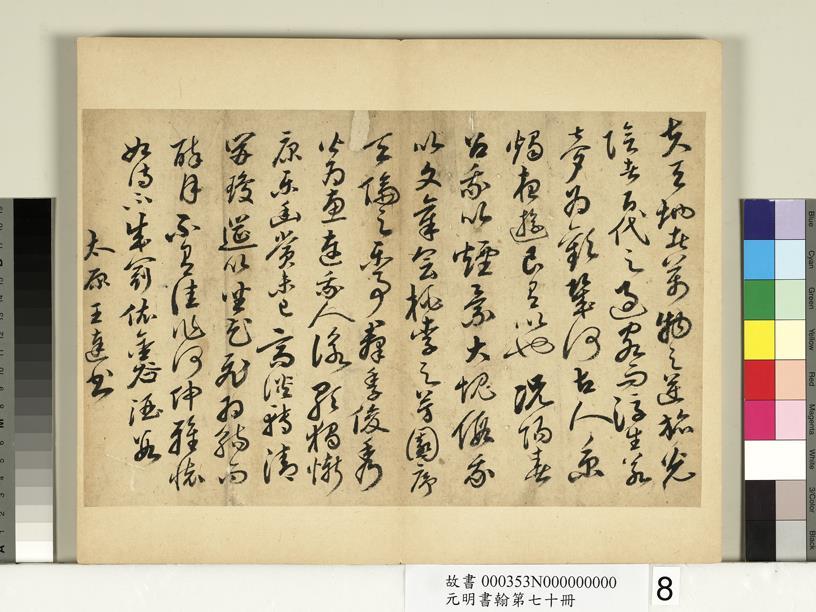 夫天地者萬物之逆旅光
陰者百代之過客而浮生若
夢為歡幾何古人秉
燭夜遊良有以也況陽春
召我以煙景大塊假我
以文章會桃李之芳園序
天倫之樂事群季俊秀
皆為惠連吾人詠歌獨慚
康樂幽賞未已高談轉清
開瓊筵以坐花飛羽觴而
醉月不有佳作何伸雅懷
如詩不成罰依金谷酒數
太原王達書
故書 000353N000000000
元明書翰第七十冊
8
Blue
Cyan
Green
Yellow
Red
Magenta
White
3/Color
Black